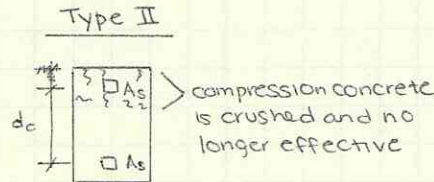 Type II
As
compression concrete
is crushed and no
longer effective
dc
As